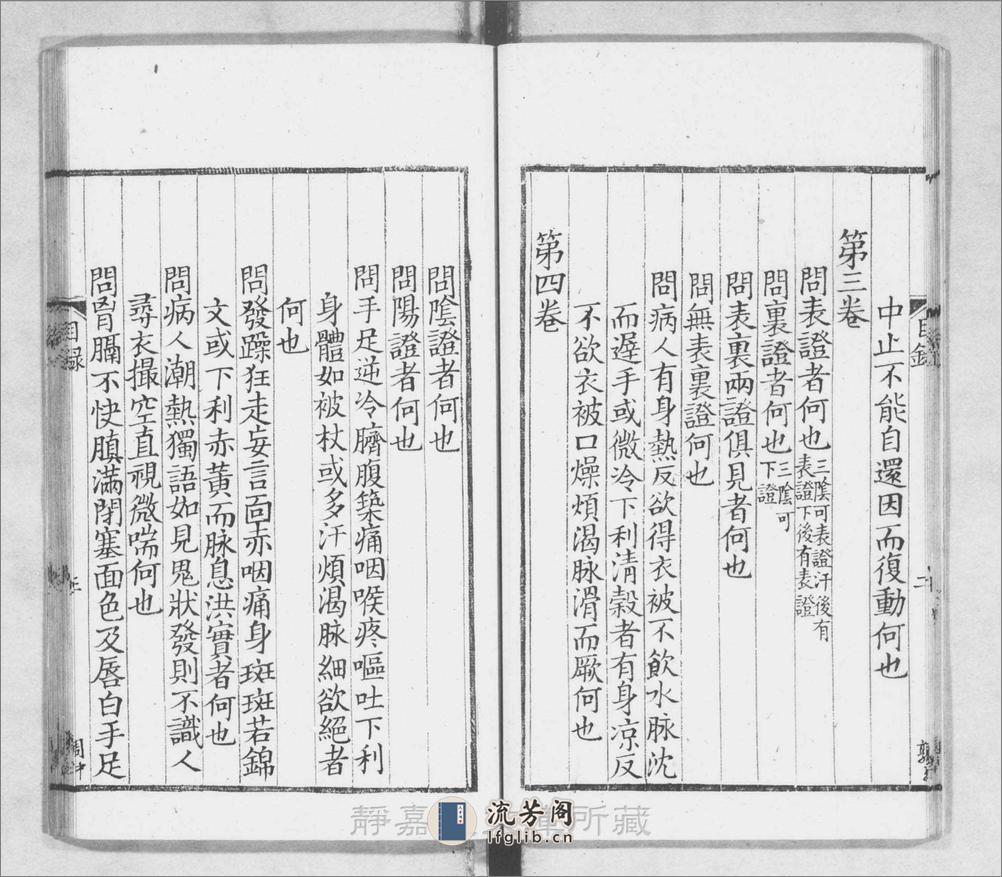 中止不能自還因而復動何也
第三卷
問表證者何也三陰可表證汗後有
表證下後有表證
問裏證者何也三陰可
下證
問表裏兩證俱見者何也
問無表裏證何也
問病人有身熱反欲得衣被不飲水脉沈
而遲手或微冷下利清穀者有身凉反
不欲衣被口燥煩渴脉滑而厥何也
第四卷
問陰證者何也
問陽證者何也
問手足逆冷臍腹築痛咽喉疼嘔吐下利
身體如被杖或多汗煩渴脉細欲絕者
何也
問發躁狂走妄言面赤咽痛身斑斑若錦
文或下利赤黃而脉息洪實者何也
問病人潮熱獨語如見鬼狀發則不識人
尋衣撮空直視微喘何也
問胷膈不快䐜滿閉塞面色及唇白手足
目録
目録
二
三
周中
靜嘉堂文庫所藏
流芳阁
lfglib.cn